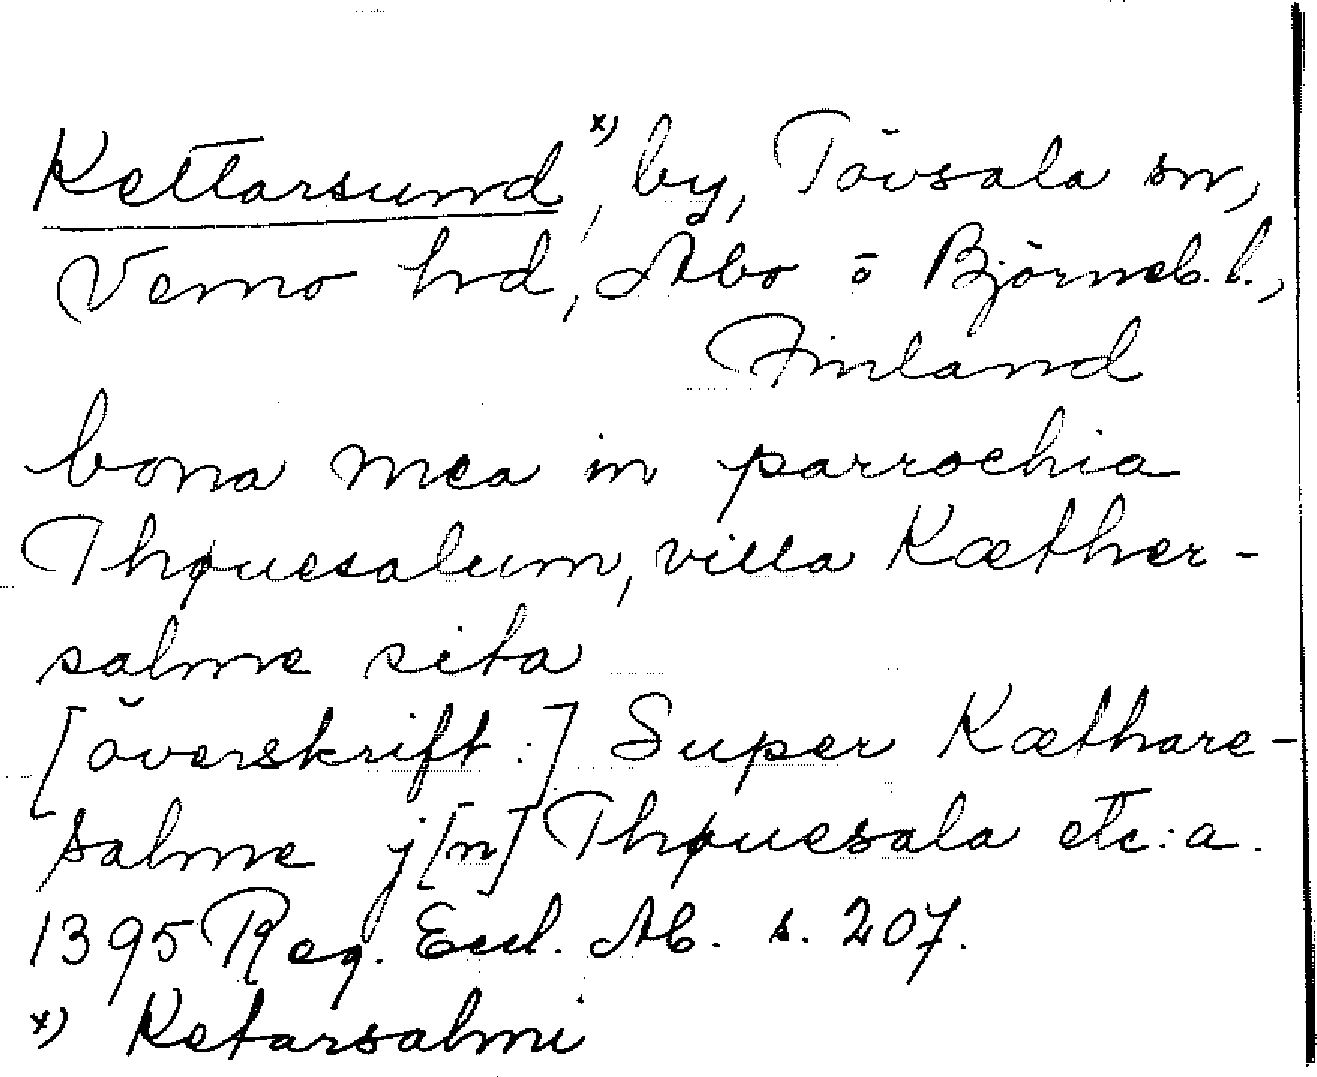 Kettarsund,ˣ⁾ by, Tövsala sn,
Vemo hd, Åbo o Björneb. l.,
Finland
bona mea in parrochia
Thøuesalum, villa Kæther-
salme sita
[överskrift:] Super Kæthare-
salme j[n] Thøuesala etc:a.
1395 Reg. Eccl. Ab. s. 207.
x) Ketarsalmi